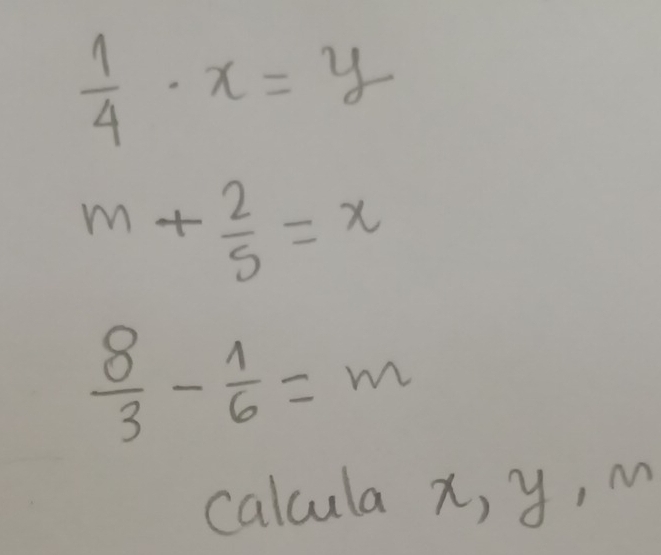 1/4 · x = y
m + 2/5 = x
8/3 - 1/6 = m
calcula x, y, m